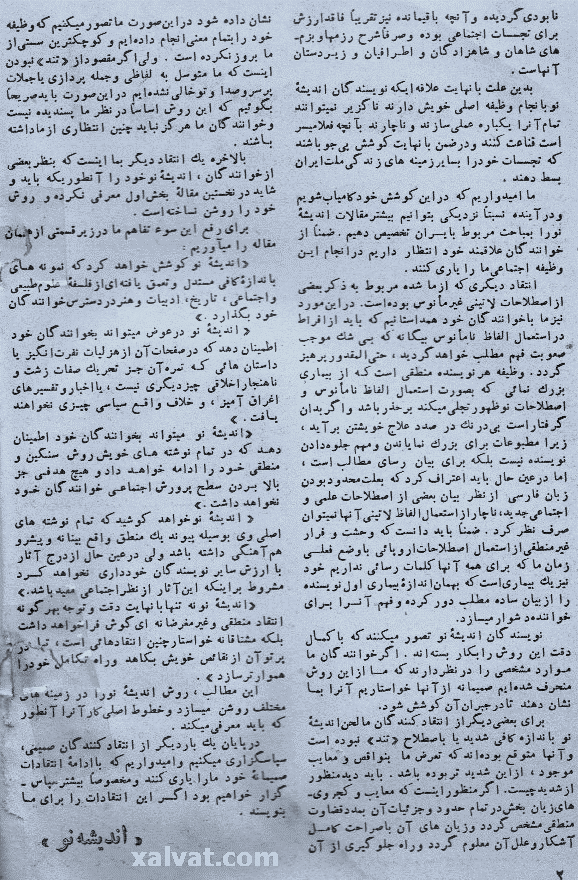 نابودی گردیده و آنچه باقیمانده نیز تقریباً فاقد ارزش
برای تجسسات اجتماعی بوده و صرفاً شرح رزمها و بزم-
های شاهان و شاهزادگان و اطرافیان و زیردستان
آنهاست .
بدین علت با نهایت علاقه ایکه نویسندگان اندیشهٔ
نو بانجام وظیفه اصلی خویش دارند ناگزیر نمیتوانند
تمام آنرا یکباره عملی سازند و ناچارند بآنچه فعلا میسر
است قناعت کنند و در ضمن با نهایت کوشش پی جو باشند
که تجسسات خود را بسایر زمینه های زندگی ملت ایران
بسط دهند .
ما امیدواریم که در این کوشش خود کامیاب شویم
و در آینده نسبتاً نزدیکی بتوانیم بیشتر مقالات اندیشهٔ
نو را بمباحث مربوط بایران تخصیص دهیم . ضمناً از
خوانندگان علاقمند خود انتظار داریم در انجام این
وظیفه اجتماعی ما را یاری کنند .
انتقاد دیگری که از ما شده مربوط به ذکر بعضی
از اصطلاحات لاتینی غیر مأنوس بوده است. در این مورد
نیز ما با خوانندگان خود همداستانیم که باید از افراط
در استعمال الفاظ نامأنوس بیگانه که بی شك موجب
صعوبت فهم مطلب خواهد گردید ، حتی المقدور پرهیز
گردد . وظیفه هر نویسنده منطقی است که از بیماری
بزرگ نمائی که بصورت استعمال الفاظ نامأنوس و
اصطلاحات نوظهور تجلی میکند برحذر باشد و اگر بدان
گرفتار است بی درنك در صدد علاج خویشتن برآید ،
زیرا مطبوعات برای بزرك نمایاندن و مهم جلوه دادن
نویسنده نیست بلکه برای بیان رسای مطالب است ،
اما در عین حال باید اعتراف کرد که بعلت محدود بودن
زبان فارسی از نظر بیان بعضی از اصطلاحات علمی و
اجتماعی جدید، ناچار از استعمال الفاظ لاتینی آنها نمیتوان
صرف نظر کرد . ضمناً باید دانست که وحشت و فرار
غیر منطقی از استعمال اصطلاحات اروپائی با وضع فعلی
زمان ما که برای همه آنها کلمات رسائی نداریم خود
نیز یك بیماری است که بهمان اندازهٔ بیماری اول نویسنده
را از بیان ساده مطلب دور کرده و فهم آنرا برای
خواننده دشوار میسازد.
نویسندگان اندیشهٔ نو تصور میکنند که با کمال
دقت این روش را بکار بسته اند . اگر خوانندگان ما
موارد مشخصی را در نظر دارند که ما از این روش
منحرف شده ایم صمیمانه از آنها خواستاریم آنرا بما
نشان دهند تا در جبران آن کوشش شود.
برای بعضی دیگر از انتقاد کنندگان ما لحن اندیشهٔ
نو باندازه کافی شدید یا باصطلاح «تند» نبوده است
و آنها متوقع بوده اند که تعرض ما بنواقص و معایب
موجود ، از این شدید تر بوده باشد . باید دید منظور
از شدید چیست. اگر منظور اینست که معایب و کجروی-
های زیان بخش در تمام حدود و جزئیات آن بمدد قضاوت
منطقی مشخص گردد و زیان های آن با صراحت کامل
آشکار و علل آن معلوم گردد و راه جلوگیری از آن
نشان داده شود در این صورت ما تصور میکنیم که وظیفه
خود را بتمام معنی انجام داده ایم و کوچکترین سستی از
ما بروز نکرده است . ولی اگر مقصود از «تند» نبودن
اینست که ما متوسل به لفاظی و جمله پردازی یا جملات
پر سر و صدا و تو خالی نشده ایم در این صورت باید صریحاً
بگوئیم که این روش اساساً در نظر ما پسندیده نیست
و خوانندگان ما هرگز نباید چنین انتظاری از ما داشته
باشند .
بالاخره یك انتقاد دیگر بما اینست که بنظر بعضی
از خوانندگان ، اندیشهٔ نو خود را آنطوریکه باید و
شاید در نخستین مقالهٔ بخش اول معرفی نکرده و روش
خود را روشن نساخته است .
برای رفع این سوء تفاهم ما در زیر قسمتی از همان
مقاله را میآوریم :
«اندیشهٔ نو کوشش خواهد کرد که نمونه های
باندازه کافی مستدل و تعمق یافته ای از فلسفهٔ علوم طبیعی
و اجتماعی ، تاریخ ، ادبیات و هنر در دسترس خوانندگان
خود بگذارد . »
« اندیشهٔ نو در عوض میتواند بخوانندگان خود
اطمینان دهد که در صفحات آن از هزلیات نفرت انگیز یا
داستان هائی که ثمره آن جز تحریك صفات زشت و
ناهنجار اخلاقی چیز دیگری نیست ، یا اخبار و تفسیرهای
اغراق آمیز ، و خلاف واقع سیاسی چیزی نخواهند
یافت . »
«اندیشهٔ نو میتواند بخوانندگان خود اطمینان
دهد که در تمام نوشته های خویش روش سنگین و
منطقی خود را ادامه خواهد داد و هیچ هدفی جز
بالا بردن سطح پرورش اجتماعی خوانندگان خود
نخواهد داشت . »
« اندیشهٔ نو خواهد کوشید که تمام نوشته های
اصلی وی بوسیله پیوند یك منطق واقع بینانه و پیشرو
هم آهنگی داشته باشد ولی در عین حال از درج آثار
با ارزش سایر نویسندگان خودداری نخواهد کرد
مشروط بر اینکه این آثار از نظر اجتماعی مفید باشد.»
«اندیشهٔ نو نه تنها با نهایت دقت و توجه بهر گونه
انتقاد منطقی و غیر مغرضانه ای گوش فرا خواهد داشت
بلکه مشتاقانه خواستار چنین انتقادهائی است ، تا در
پرتو آن از نقائص خویش بکاهد و راه تکامل خود را
هموار تر سازد » .
این مطالب ، روش اندیشهٔ نو را در زمینه های
مختلف روشن میسازد و خطوط اصلی کار آنرا آنطور
که باید معرفی میکند .
در پایان یك بار دیگر از انتقاد کنندگان صمیمی،
سپاسگزاری میکنیم و امیدواریم که با ادامهٔ انتقادات
صمیمانهٔ خود ما را یاری کنند و مخصوصاً بیشتر سپاس-
گزار خواهیم بود اگر این انتقادات را برای ما
بنویسند .
« اندیشه نو »
xalvat.com
۲